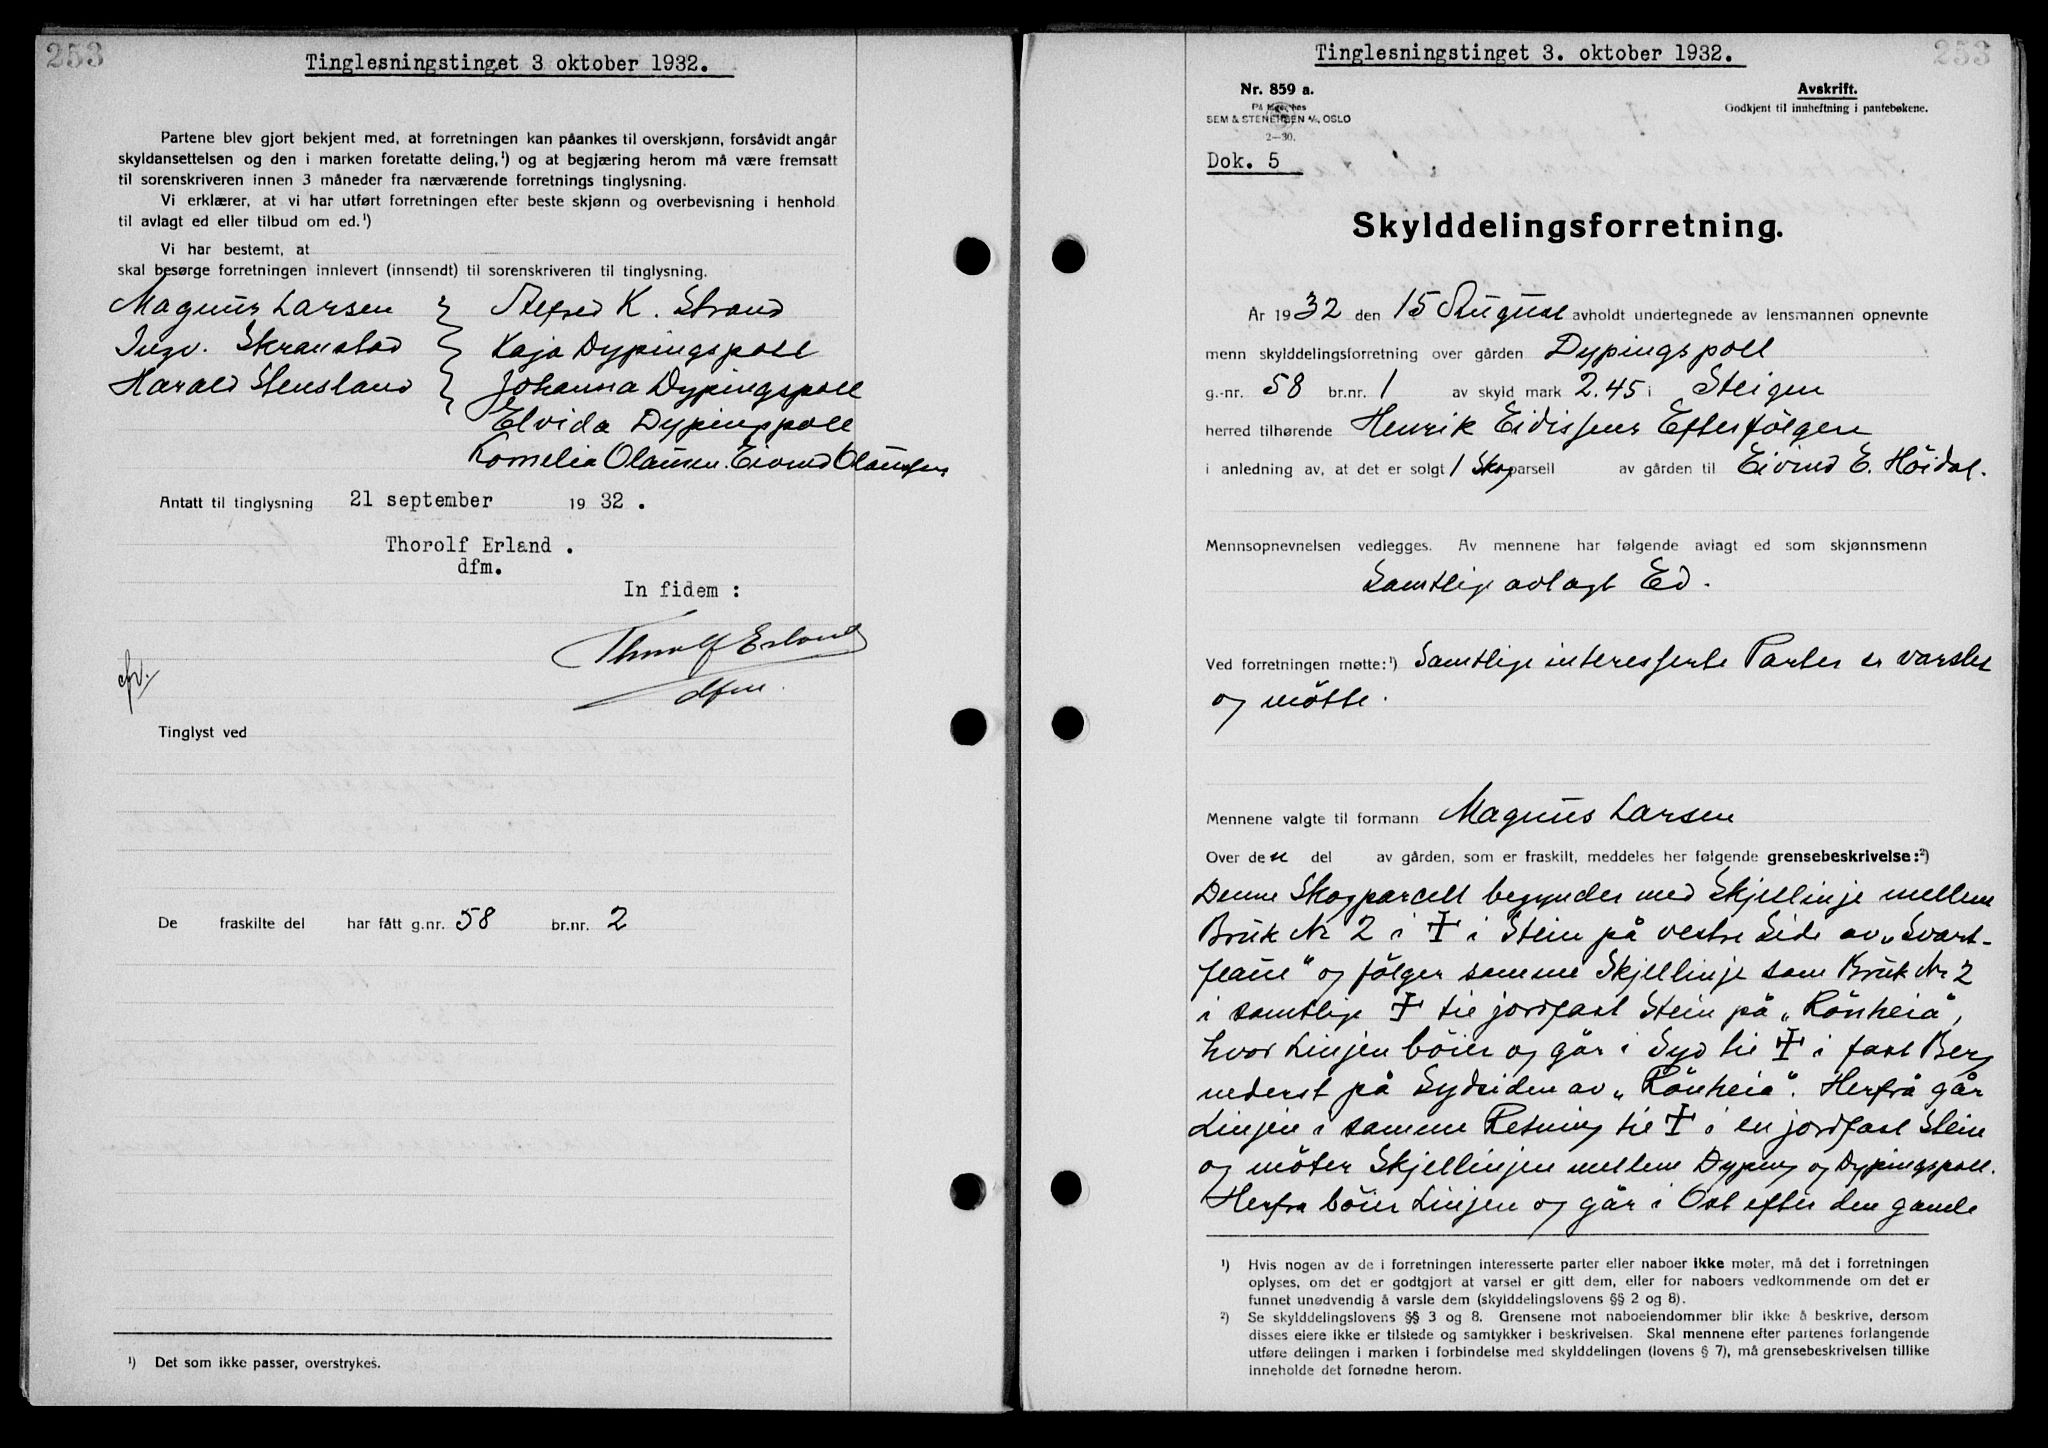 253
Tinglesningstinget 3 oktober 1932.
Partene blev gjort bekjent med, at forretningen kan påankes til overskjønn, forsåvidt angår
skyldansettelsen og den i marken foretatte deling,¹) og at begjæring herom må være fremsatt
til sorenskriveren innen 3 måneder fra nærværende forretnings tinglysning.
Vi erklærer, at vi har utført forretningen efter beste skjønn og overbevisning i henhold
til avlagt ed eller tilbud om ed.¹)
Vi har bestemt, at
skal besørge forretningen innlevert (innsendt) til sorenskriveren til tinglysning.
Magnus Larsen } Alfred K. Strand
Ingv. Skranstad } Kaja Dypingspoll
Harald Stensland } Johanna Dypingspoll
Elvida Dypingspoll
Kornelia Olaussen. Eivind Olaussen
Antatt til tinglysning 21 september 1932.
Thorolf Erland.
dfm.
In fidem :
Thorolf Erland
dfm.
Tinglyst ved
De fraskilte del har fått g.nr. 58 br.nr. 2
¹) Det som ikke passer, overstrykes.
Tinglesningstinget 3. oktober 1932.
253
Nr. 859 a.
SEM & STENERSEN A/S, OSLO
2—30.
Avskrift.
Godkjent til innheftning i pantebøkene.
Dok. 5
Skylddelingsforretning.
År 1932 den 15 August avholdt undertegnede av lensmannen opnevnte
menn skylddelingsforretning over gården Dypingspoll
g.-nr. 58 br.nr. 1 av skyld mark 2.45 i Steigen
herred tilhørende Henrik Eidissens Efterfölgere
i anledning av, at det er solgt 1 Skogparsell av gården til Eivind E. Höidal.
Mennsopnevnelsen vedlegges. Av mennene har følgende avlagt ed som skjønnsmenn
Samtlige avlagt Ed.
Ved forretningen møtte:¹) Samtlige interesserte Parter er varslet
og mötte.
Mennene valgte til formann Magnus Larsen
Over den del av gården, som er fraskilt, meddeles her følgende grensebeskrivelse:²)
Denne Skogparcell begynder med Skjellinje mellem
Bruk Nr 2 i ☩ i Stein på vestre Side av „Svart-
flaue" og fölger samme Skjellinje som Bruk Nr 2
i samtlige ☩ til jordfast Stein på „Rönheia",
hvor Linjen böier og går i Syd til ☩ i fast Berg
nederst på Sydsiden av „Rönheia". Herfrå går
Linjen i samme Retning til ☩ i en jordfast Stein
og möter Skjellinjen mellem Dyping og Dypingspoll.
Herfra böier Linjen og går i Ost efter den gamle
¹) Hvis nogen av de i forretningen interesserte parter eller naboer ikke møter, må det i forretningen
oplyses, om det er godtgjort at varsel er gitt dem, eller for naboers vedkommende om det er
funnet unødvendig å varsle dem (skylddelingslovens §§ 2 og 8).
²) Se skylddelingslovens §§ 3 og 8. Grensene mot naboeiendommer blir ikke å beskrive, dersom
disses eiere ikke er tilstede og samtykker i beskrivelsen. Skal mennene efter partenes forlangende
utføre delingen i marken i forbindelse med skylddelingen (lovens § 7), må grensebeskrivelsen tillike
inneholde det fornødne herom.